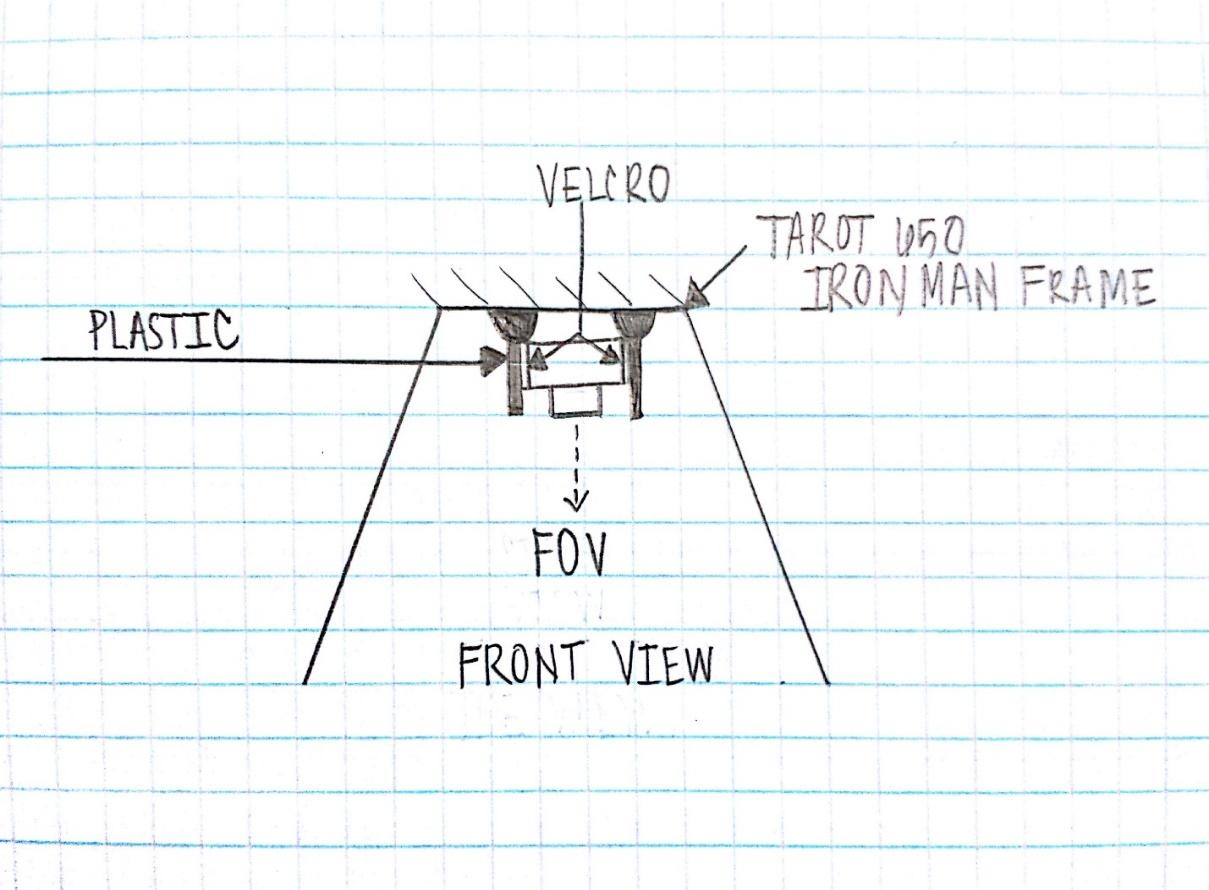 VELCRO
TAROT 650
IRON MAN FRAME
PLASTIC
FOV
FRONT VIEW